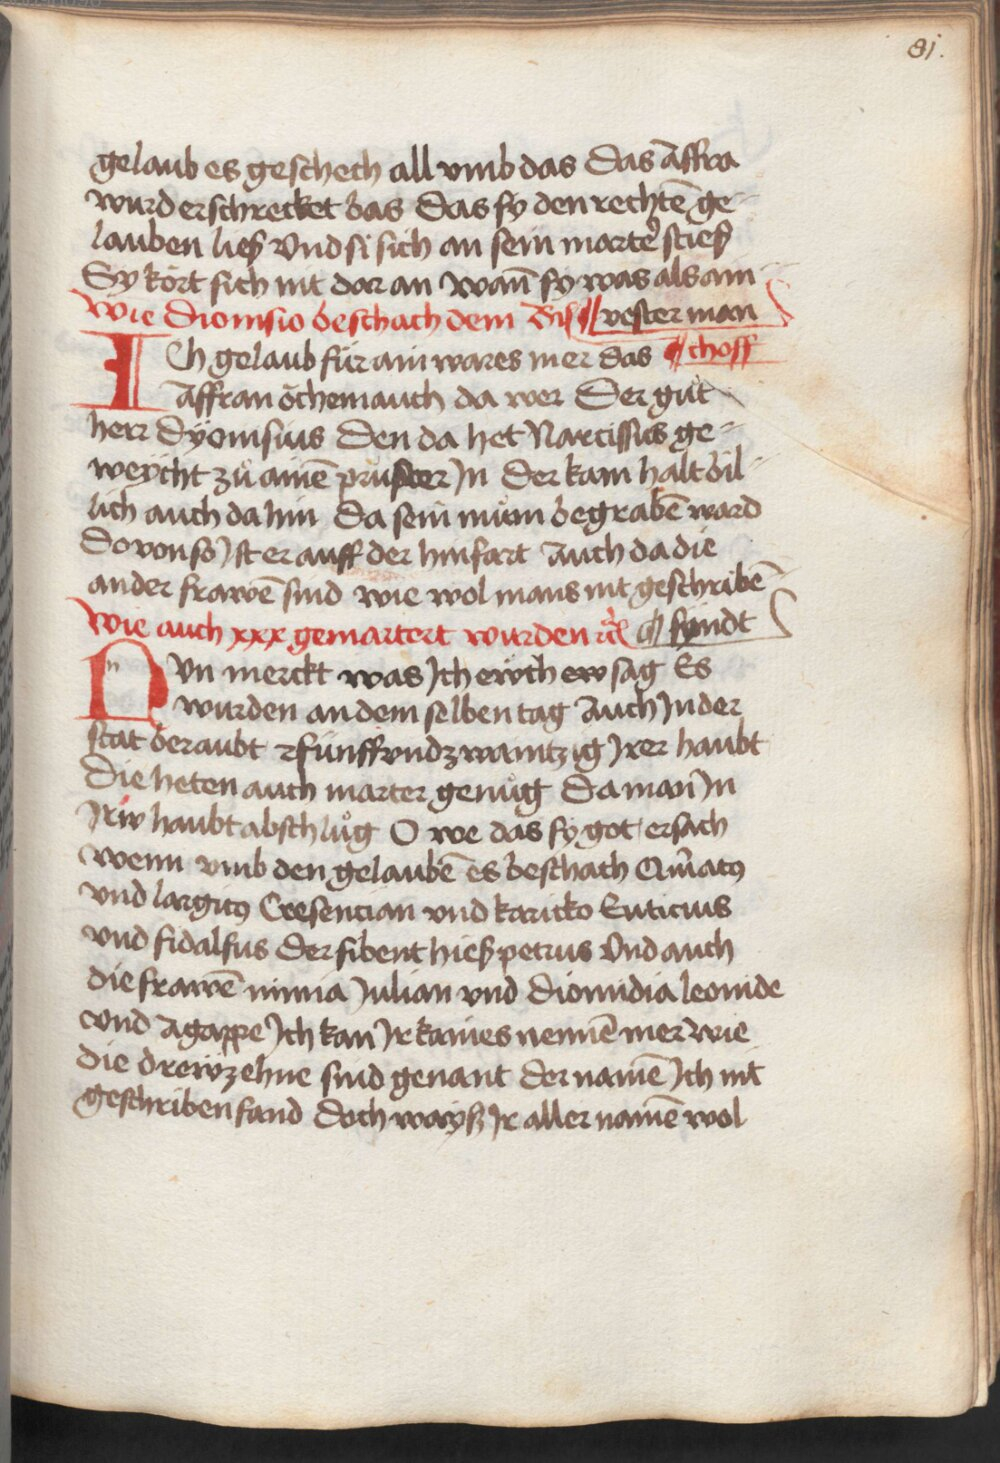 81.
gelaub es geschech all vmb das Das Affra
wurd erschrecket bas Das sy den rechtē ge-
lauben lieſs Vnd si sich an sein marter stieſs
Sy kört sich nit dar an Wañ sy was als ain
vester man
Wie Dionisio beschach dem Bischoff
ICh gelaub für ain wares mer das
Affran öchem auch da wer Der gůt
herr Dyonisius Den da het Narcissus ge-
weycht zů ainē priester Jn Der kam halt bil-
lich auch da hin Da sein mům begrabē ward
Do von so Jst er auff der hinfart Auch da die
ander frawē sind wie wol mans nit geschribē
syndt
Wie auch xxx gemartert wurden
NVn merckt was Jch eẅch ew sag Es
wurden an dem selben tag Auch Jn der
stat beraubt fünff vnd zwaintzig Jrer haubt
Die heten auch marter genůg Da man Jn
Jriw haubt abschlůg O we das sy got ersach
Wenn vmb den gelaubē es beschach
vnd largio9 Cresencian vnd karicko Euticius
vnd fidalsus Der sibent hieſs petrus Vnd auch
die frawē nimia Julian vnd Dionidia leonide
vnd Agappe Jch kan Jr kaines nennē mer Wie
die dreẅzehne sind genant der namē Jch nit
geschriben fand Doch wayſs Jr aller namē wol